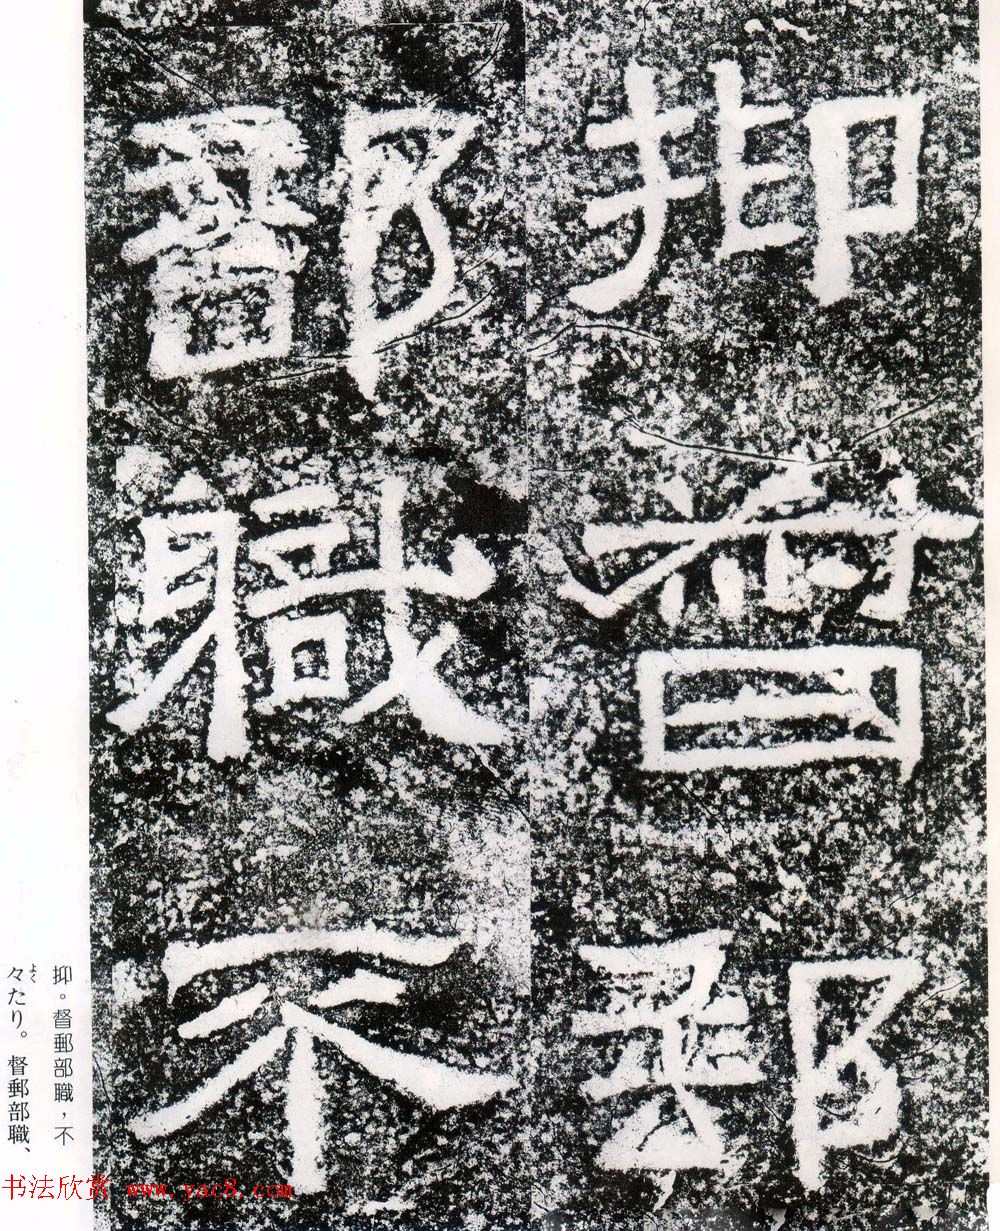 抑督郵
部職不
抑。督郵部職，不
々たり。督郵部職、
よく
书法欣赏 www.yac8.com